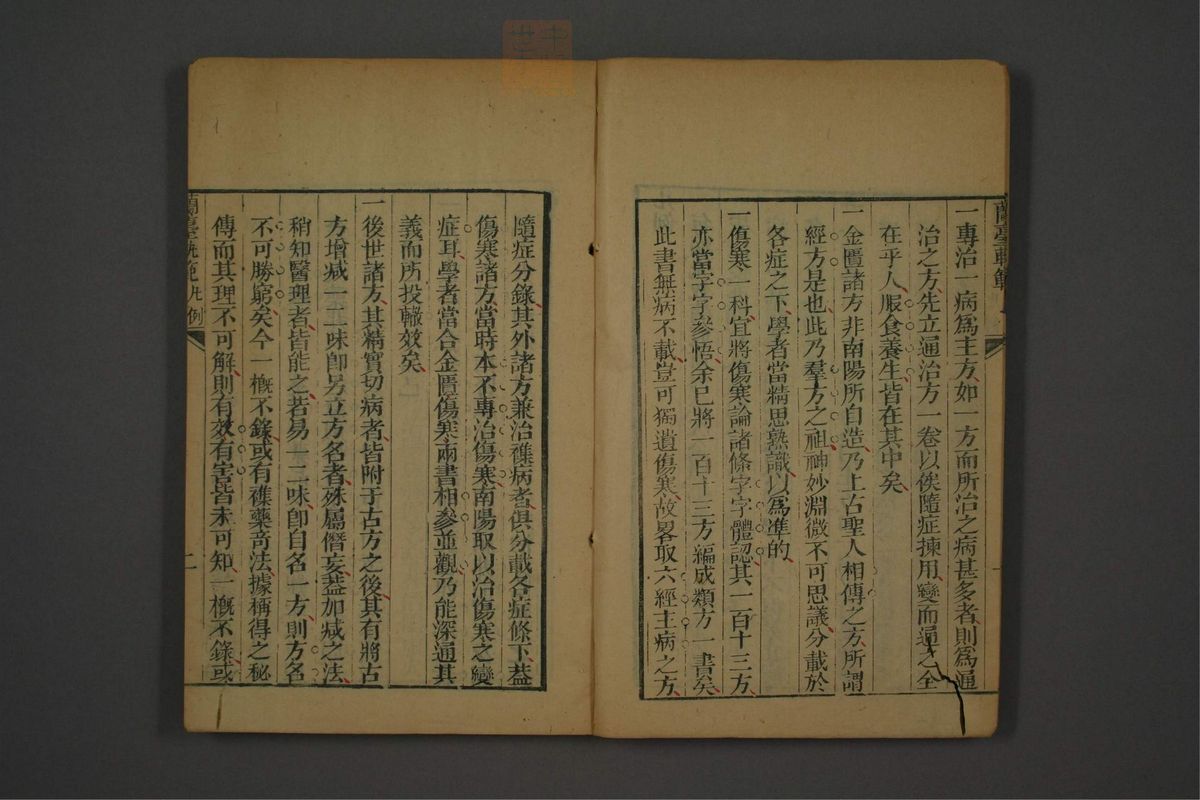 蘭臺軌範
一專治一病爲主方如一方而所治之病甚多者則爲通
治之方先立通治方一卷以俟隨症揀用變而通之全
在乎人服食養生皆在其中矣
一金匱諸方非南陽所自造乃上古聖人相傳之方所謂
經方是也此乃羣方之祖神妙淵微不可思議分載於
各症之下學者當精思熟識以爲準的
一傷寒一科宜將傷寒論諸條字字體認其一百十三方
亦當字字參悟余已將一百十三方編成類方一書矣
此書無病不載豈可獨遺傷寒故畧取六經主病之方
隨症分錄其外諸方兼治雜病者俱分載各症條下蓋
傷寒諸方當時本不專治傷寒南陽取以治傷寒之變
症耳學者當合金匱傷寒兩書相參並觀乃能深通其
義而所投輙效矣
一後世諸方其精實切病者皆附于古方之後其有將古
方增减一二味卽另立方名者殊屬僭妄蓋加减之法
稍知醫理者皆能之若易一二味卽自名一方則方名
不可勝窮矣今一槪不錄或有襍藥奇法據稱得之秘
傳而其理不可解則有效有害皆未可知一槪不錄或
蘭臺軌範 凡例
二